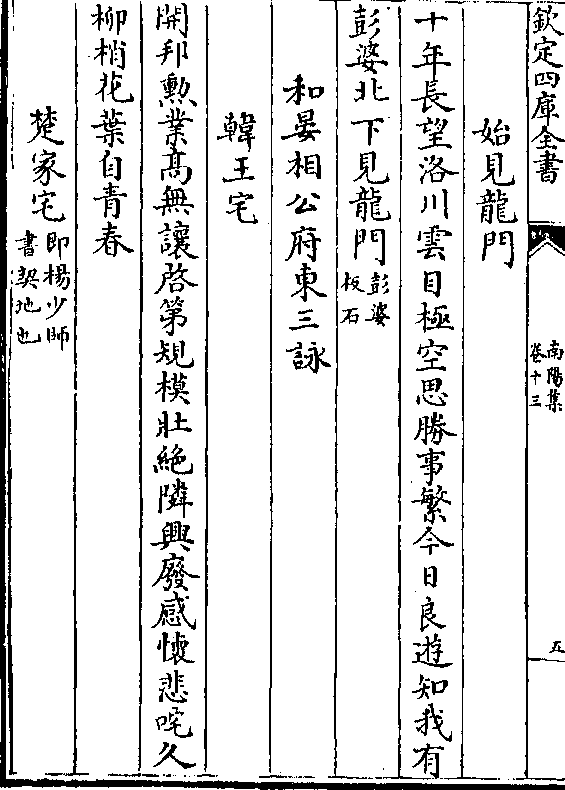 欽定四庫全書
南陽集
卷十三
五
始見龍門
十年長望洛川雲目極空思勝事繁今日良遊知我有
彭婆北下見龍門彭婆
板石
和晏相公府東三詠
韓王宅
開邦勲業髙無讓啓第規模壯絶隣興廢感懐悲咤久
柳梢花葉自青春
楚家宅即楊少師
書契地也